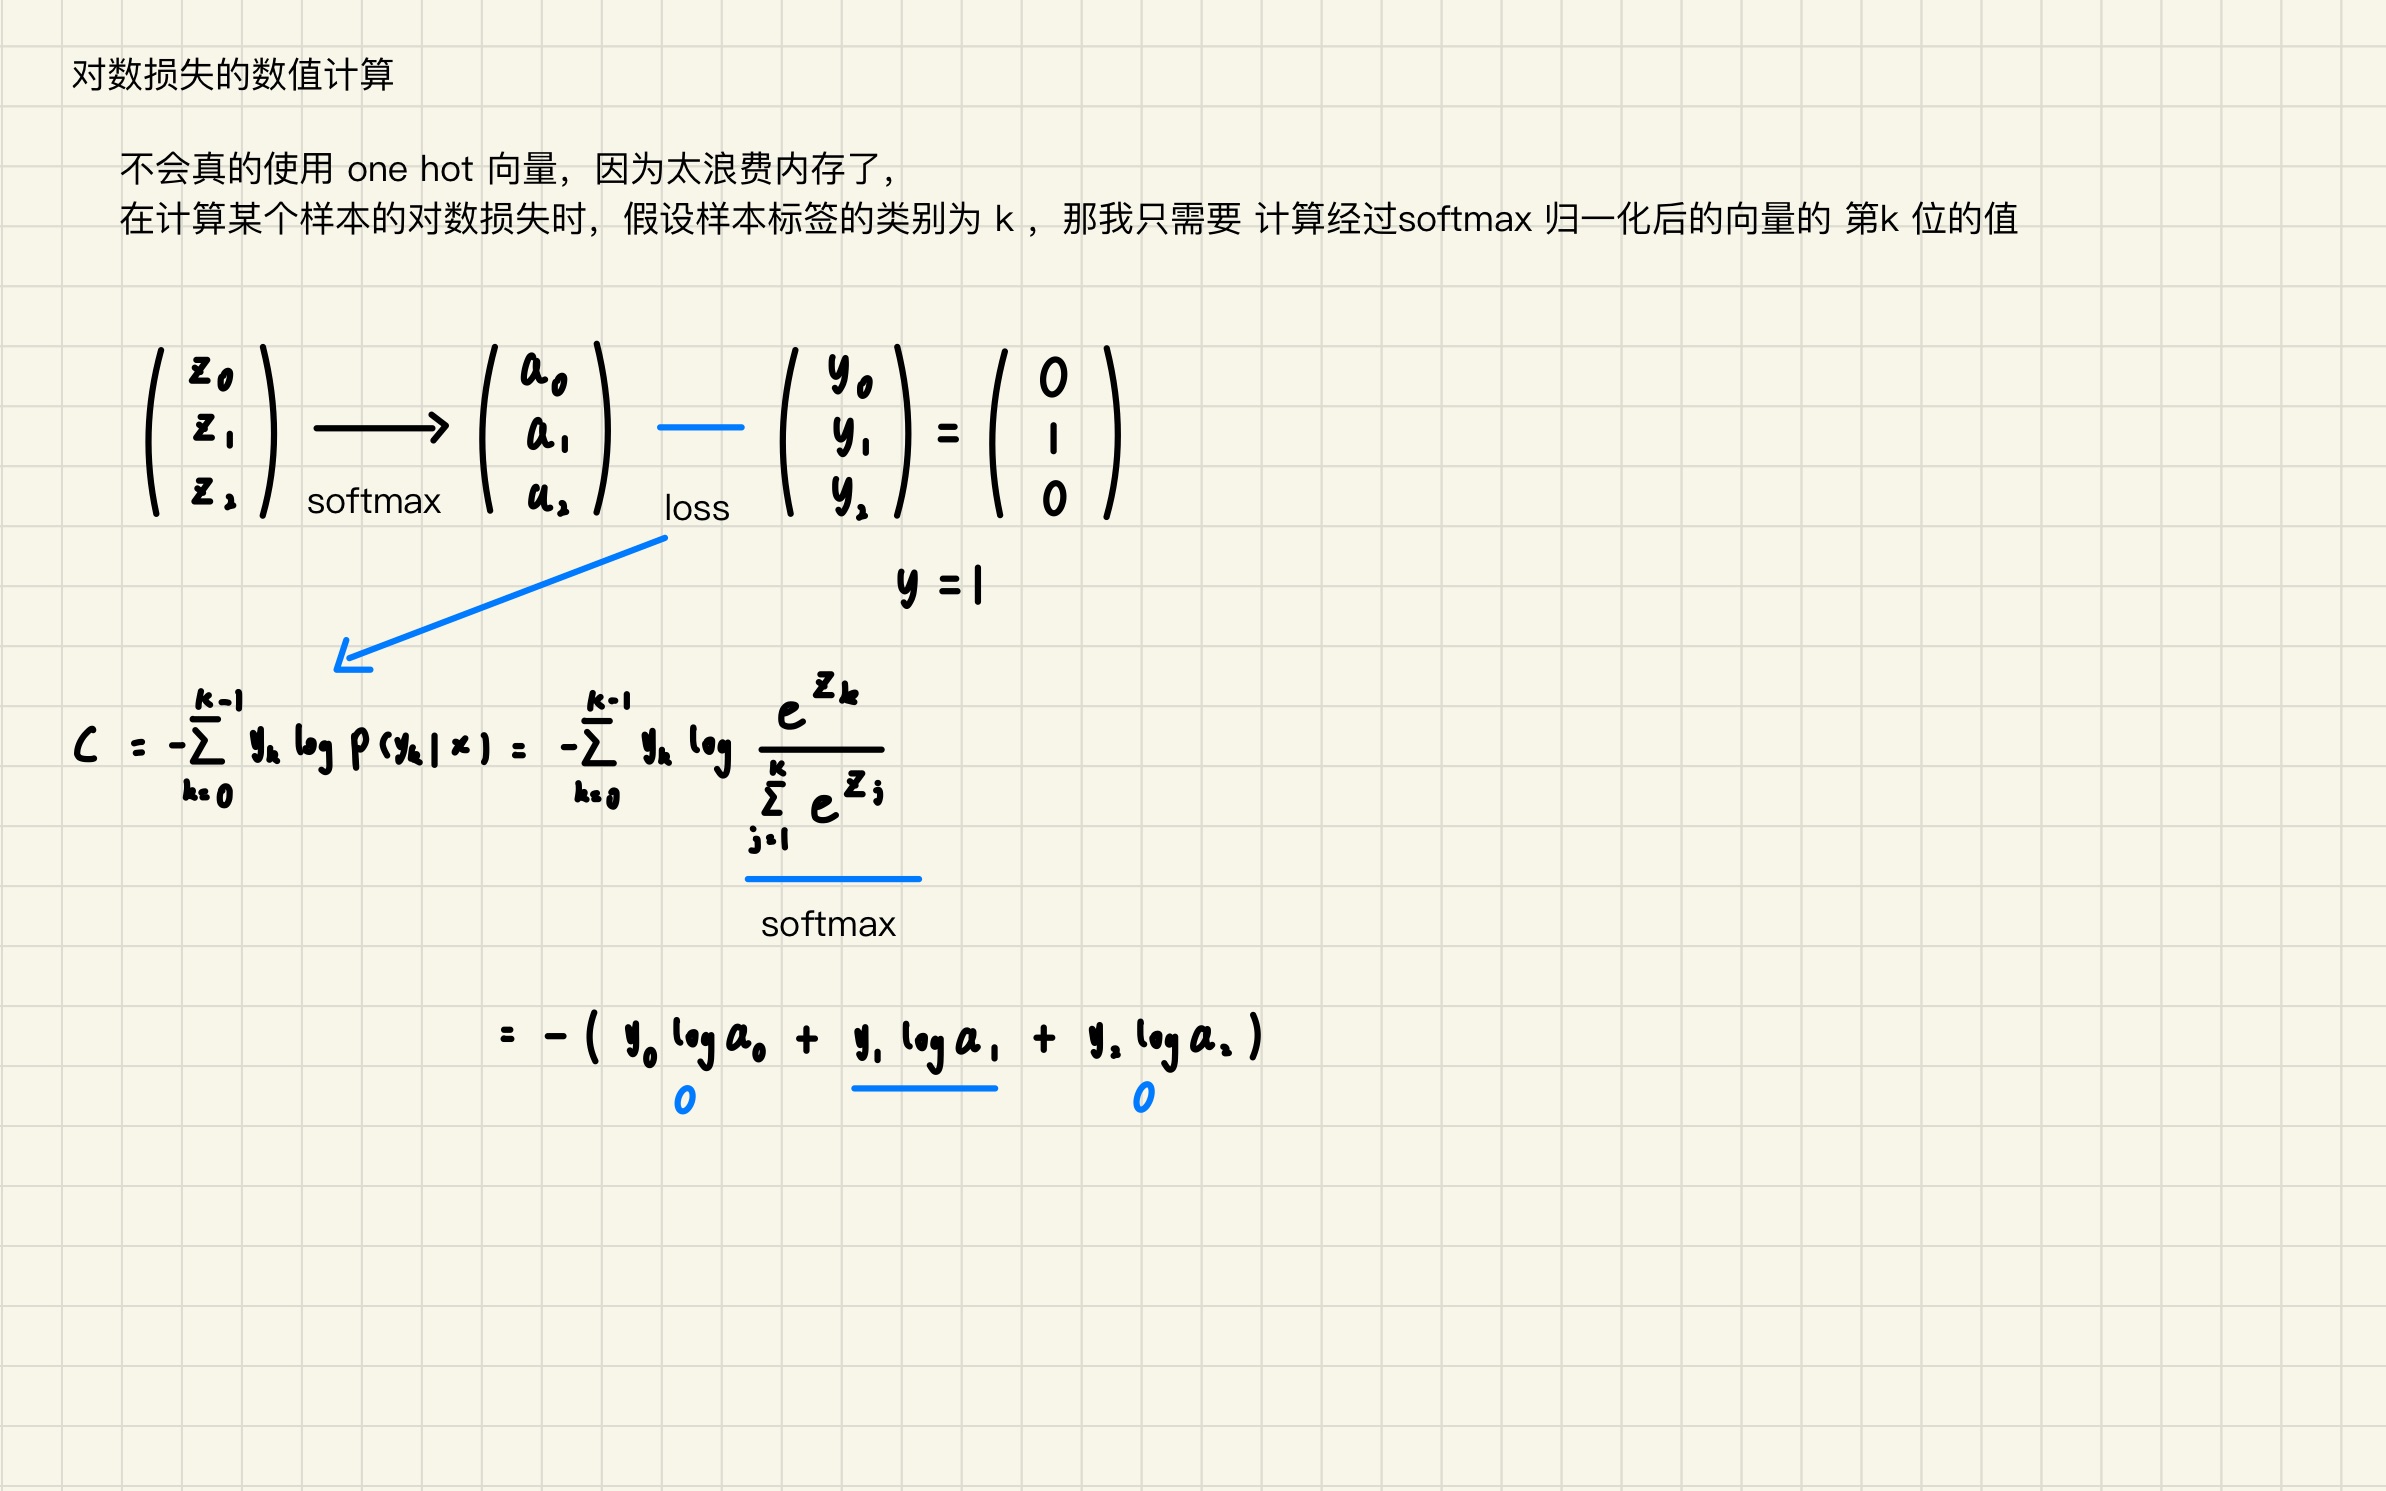 对数损失的数值计算
不会真的使用 one hot 向量，因为太浪费内存了，
在计算某个样本的对数损失时，假设样本标签的类别为 k ，那我只需要 计算经过softmax 归一化后的向量的 第k 位的值
( z₀ z₁ z₂ ) → ( a₀ a₁ a₂ ) — ( y₀ y₁ y₂ ) = ( 0 1 0 )
softmax loss
y = 1
C = -∑_{k=0}^{K-1} y_k log P(y_k | x) = -∑_{k=0}^{K-1} y_k log \frac{e^{z_k}}{∑_{j=1}^{K} e^{z_j}}
softmax
= - ( y₀ log a₀ + y₁ log a₁ + y₂ log a₂ )
0 0